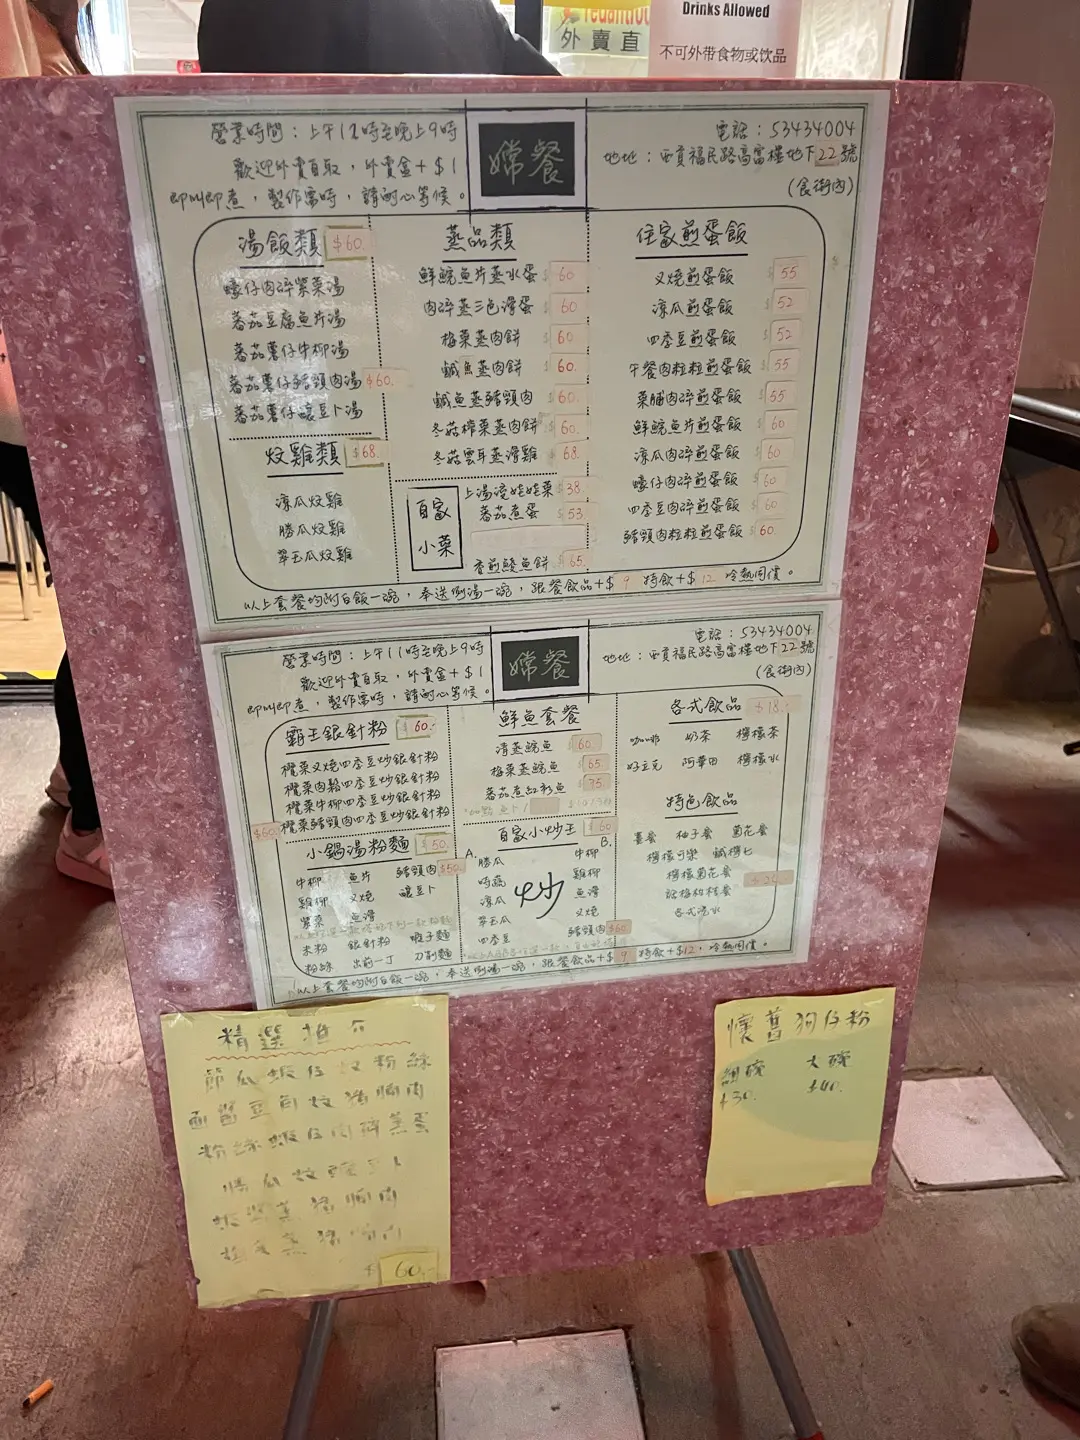 外賣直
Drinks Allowed
不可外带食物或饮品
營業時間：上午12時至晚上9時
歡迎外賣自取，外賣盒+$1
即叫即煮，製作需時，請耐心等候。
嫦餐
電話：53434004
地址：西貢福民路高富樓地下22號
(食街內)
湯飯類 $60.
蠔仔肉碎紫菜湯
蕃茄豆腐魚片湯
蕃茄薯仔牛柳湯
蕃茄薯仔豬頸肉湯 $60.
蕃茄薯仔釀豆卜湯
炆雞類 $68.
涼瓜炆雞
勝瓜炆雞
翠玉瓜炆雞
蒸品類
鮮鯇魚片蒸水蛋 $60
肉碎蒸三色滑蛋 $60
梅菜蒸肉餅 $60
鹹魚蒸肉餅 $60.
鹹魚蒸豬頸肉 $60.
冬菇榨菜蒸肉餅 $60.
冬菇雲耳蒸滑雞 $68.
自家小菜
上湯浸娃娃菜 $38.
蕃茄煮蛋 $53
香煎鯪魚餅 $65.
住家煎蛋飯
叉燒煎蛋飯 $55
涼瓜煎蛋飯 $52
四季豆煎蛋飯 $52
午餐肉粒粒煎蛋飯 $55
菜脯肉碎煎蛋飯 $55
鮮鯇魚片煎蛋飯 $60
涼瓜肉碎煎蛋飯 $60
蠔仔肉碎煎蛋飯 $60
四季豆肉碎煎蛋飯 $60
豬頸肉粒粒煎蛋飯 $60.
以上套餐均附白飯一碗，奉送例湯一碗，跟餐飲品+$9 特飲+$12 冷熱同價。
營業時間：上午11時至晚上9時
歡迎外賣自取，外賣盒+$1
即叫即煮，製作需時，請耐心等候。
嫦餐
電話：53434004
地址：西貢福民路高富樓地下22號
(食街內)
霸王銀針粉 $60.
欖菜叉燒四季豆炒銀針粉
欖菜肉鬆四季豆炒銀針粉
欖菜牛柳四季豆炒銀針粉
$60. 欖菜豬頸肉四季豆炒銀針粉
小鍋湯粉麵 $50.
牛柳 魚片 豬頸肉 $50.
雞柳 叉燒 釀豆卜
紫菜 魚滑
米粉 銀針粉 蝦子麵
粉絲 出前一丁 刀削麵
鮮魚套餐
清蒸鯇魚 $60.
梅菜蒸鯇魚 $65.
蕃茄煮紅衫魚 $75.
自家小炒王 $60
A. 勝瓜 時蔬 涼瓜 翠玉瓜 四季豆
炒
B. 牛柳 雞柳 魚滑 叉燒 豬頸肉 $60.
各式飲品 $18.
咖啡 奶茶 檸檬茶
好立克 阿華田 檸檬水
特色飲品
薑蜜 柚子蜜 菊花蜜
檸檬可樂 鹹檸七
檸檬菊花蜜
各式汽水
以上套餐均附白飯一碗，奉送例湯一碗，跟餐飲品+$9 特飲+$12，冷熱同價。
精選推介
節瓜蝦仔炆粉絲
面醬豆角炆豬腩肉
粉絲蝦仔肉碎蒸蛋
勝瓜炆釀豆卜
蝦醬蒸豬腩肉
梅菜蒸豬腩肉
$60.-
懷舊狗仔粉
細碗 大碗
$30. $40.